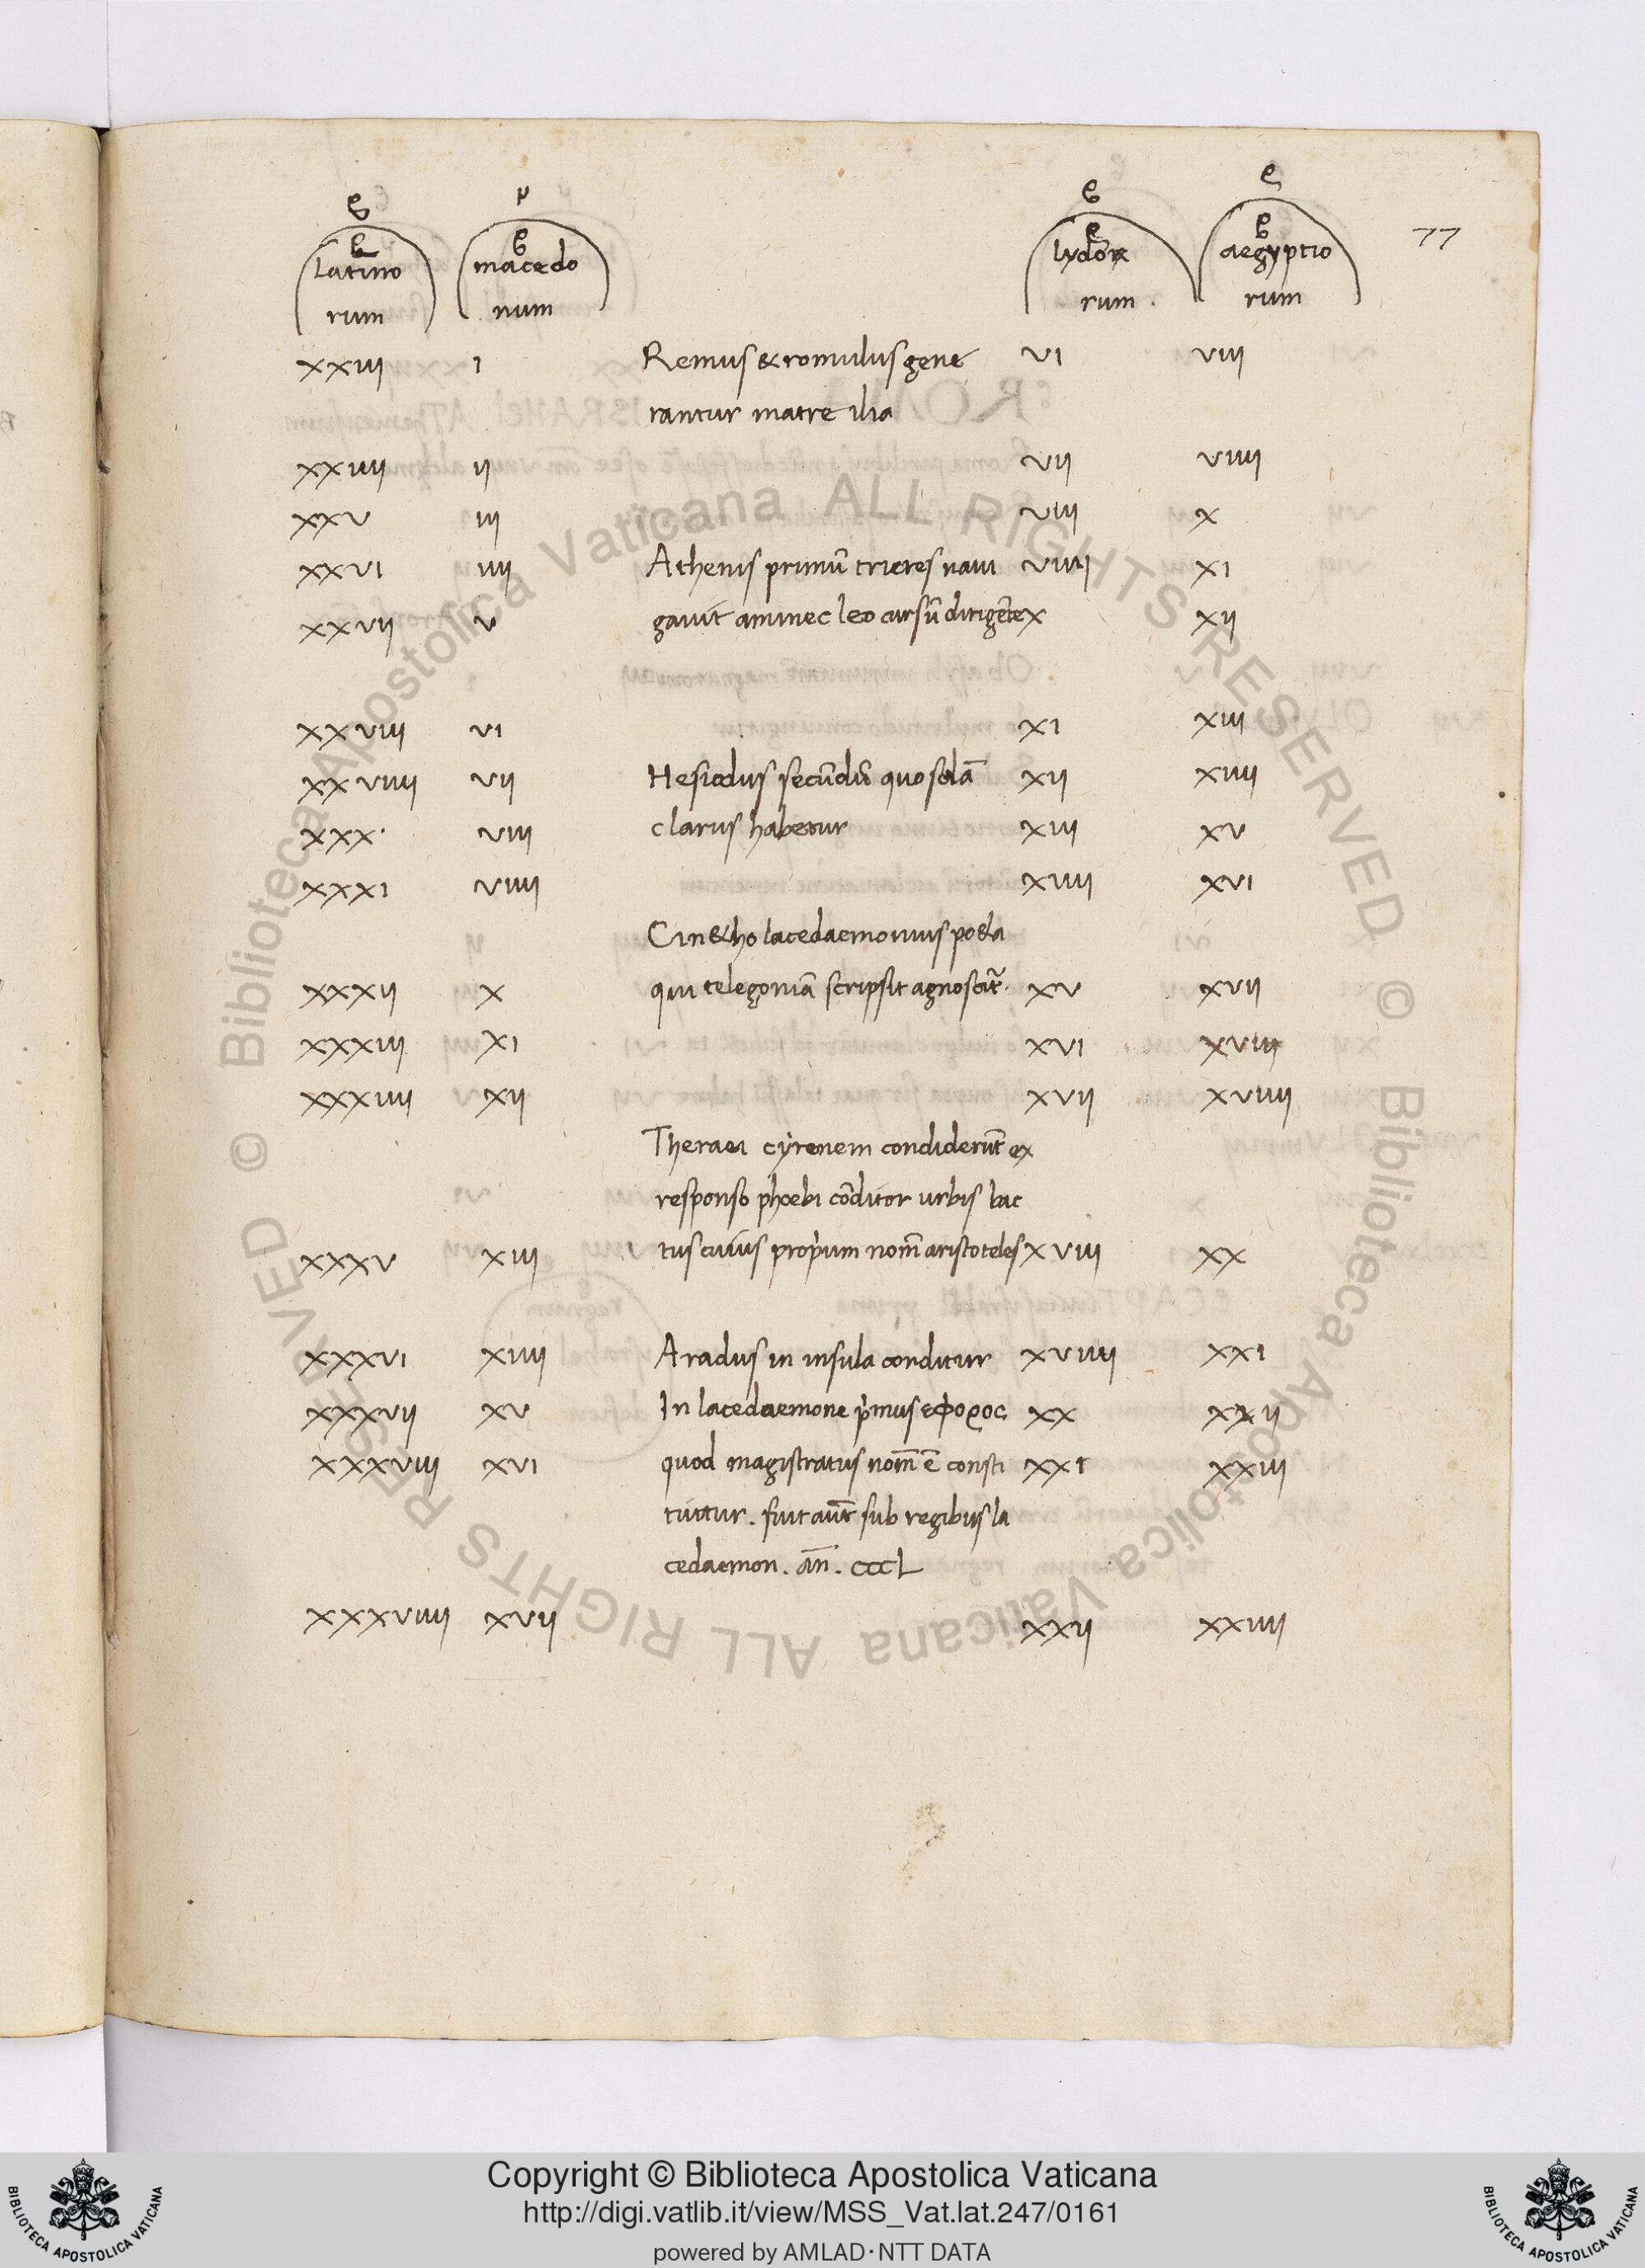 77
latino macedo lydor aegyptio
rum num rum . rum
xxiii i Remus & romulus gene vi viii
rantur matre ilia
xxiiii ii vii viiii
xxv iii viii x
xxvi iiii Athenis primū trieres navi viiii xi
xxvii v gavit aminec leo cursū dirigēte x xii
xxviii vi xi xiii
xxviiii vii Hesiodus secūdū quosdā xii xiiii
xxx · viii clarus habetur xiii xv
xxxi viiii xiiii xvi
Cin&ho lacedaemonius po&a
xxxii x qui telegoniā scripsit agnoscit̄ · xv xvii
xxxiii xi xvi xviii
xxxiiii xii xvii xviiii
Theraei cyrenem condiderūt ex
responso phoebi cōditor urbis bac
xxxv xiii tus cuius proprium nom̄ aristoteles xviii xx
xxxvi xiiii Aradus in insula conditur xviiii xxi
xxxvii xv In lacedaemone pimus εφορος xx xxii
xxxviii xvi quod magistratus nom̄ ē consti xxi xxiii
tuitur . fuit aut̄ sub regibus la
cedaemon . an̄ . cccL
xxxviiii xvii xxii xxiiii
© Biblioteca Apostolica Vaticana ALL RIGHTS RESERVED © Biblioteca Apostolica Vaticana ALL RIGHTS RESERVED
Copyright © Biblioteca Apostolica Vaticana
http://digi.vatlib.it/view/MSS_Vat.lat.247/0161
powered by AMLAD·NTT DATA
BIBLIOTECA APOSTOLICA VATICANA
BIBLIOTECA APOSTOLICA VATICANA